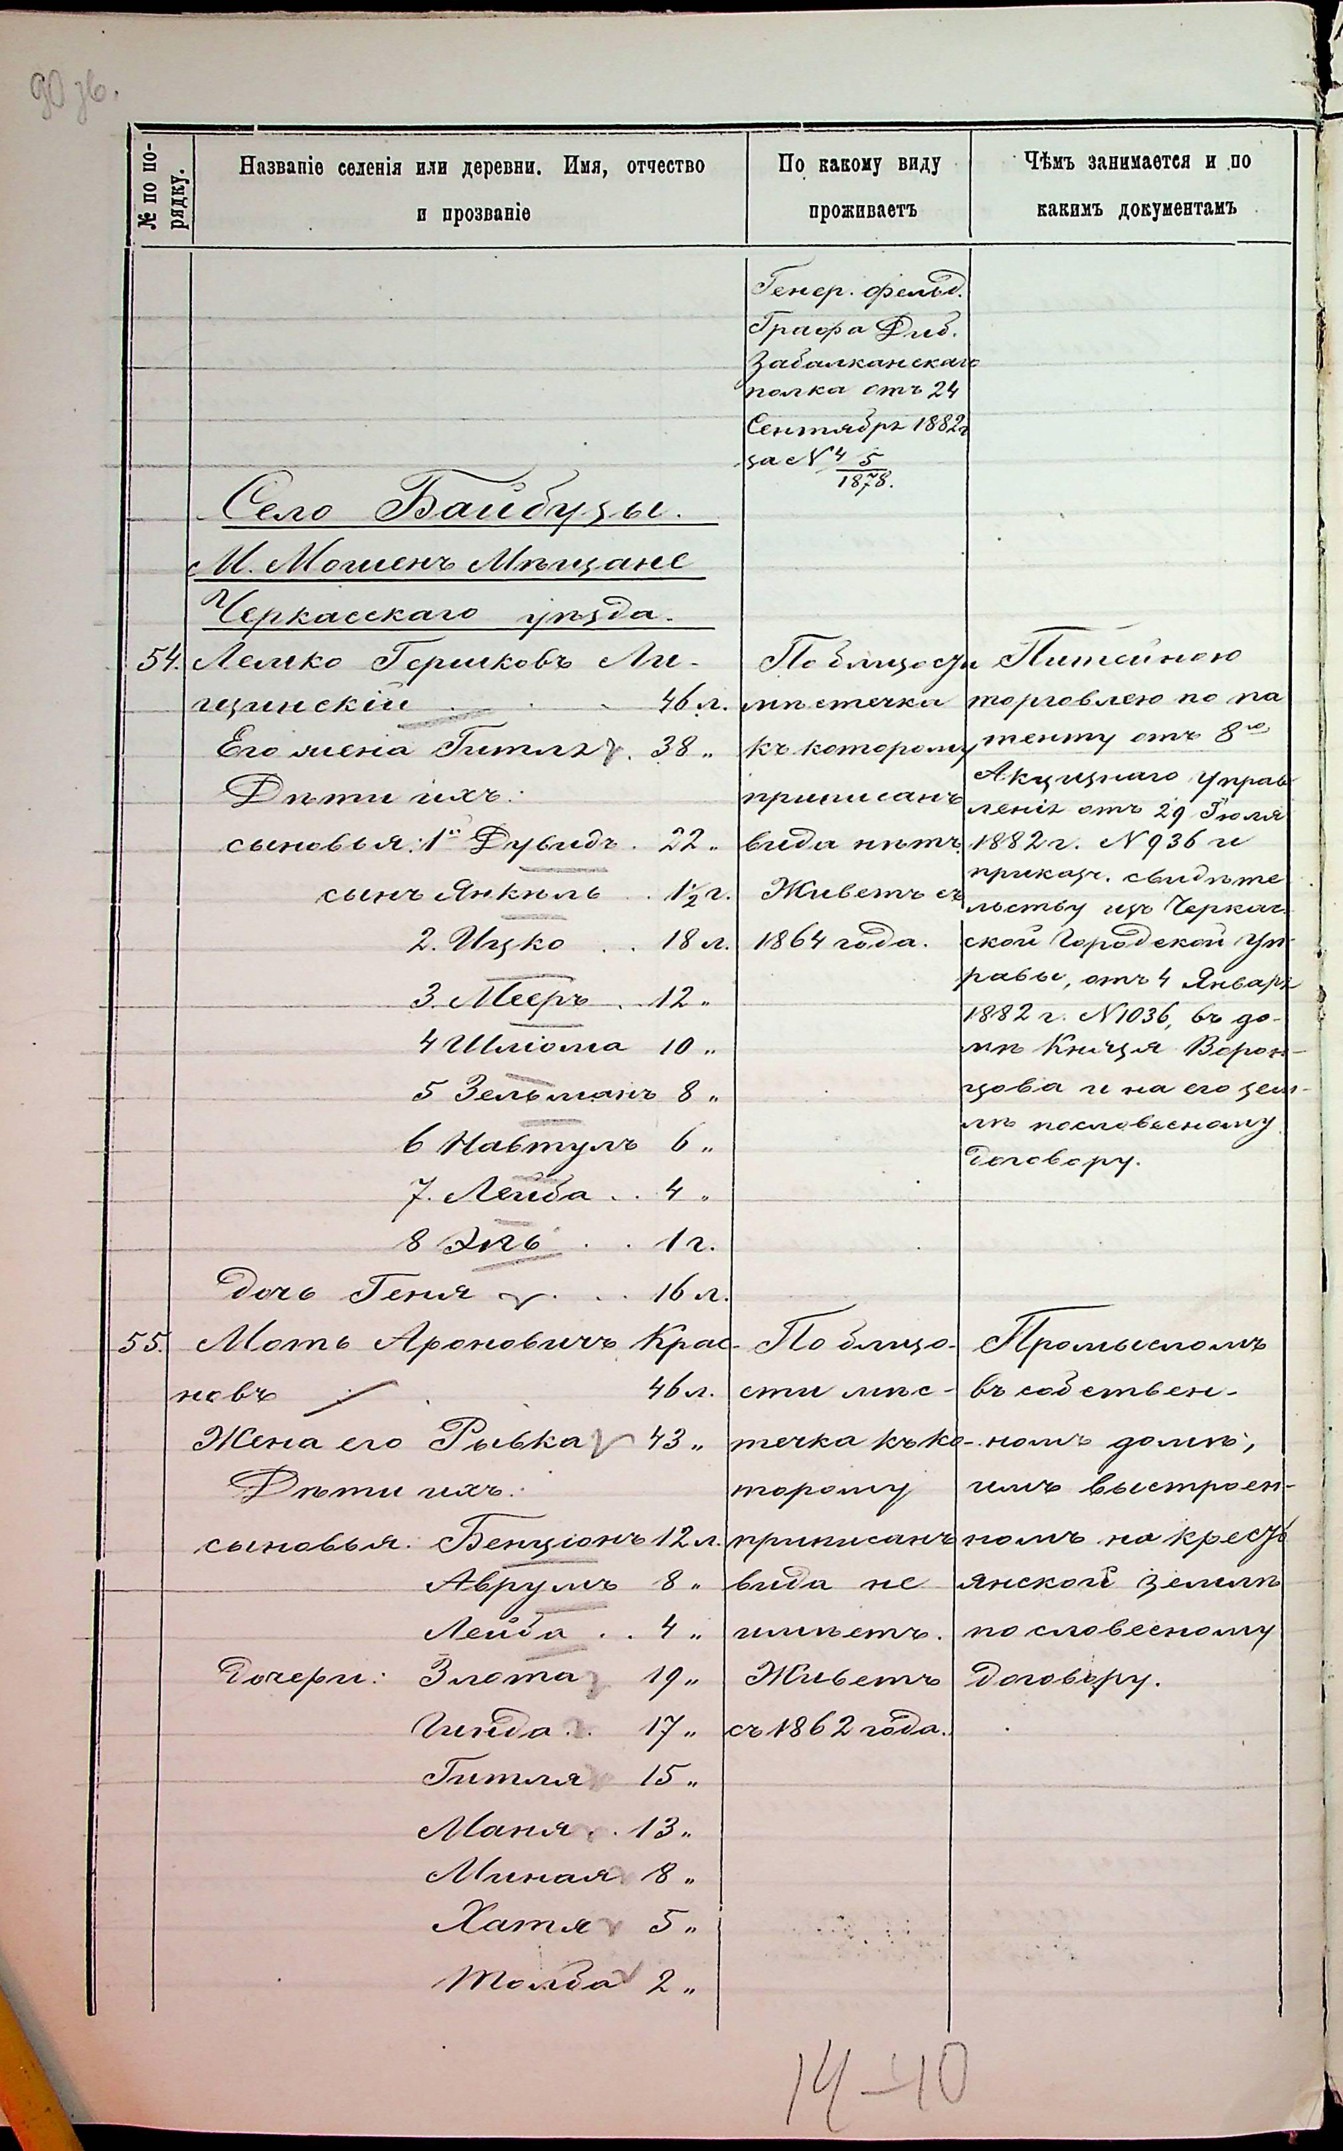 90 зв.
№ по по-
рядку.
Названіе селенія или деревни. Имя, отчество
и прозваніе
По какому виду
проживаетъ
Чѣмъ занимается и по
какимъ документамъ
Генер. фельд.
Графа Диб.
Забалканскаго
полка отъ 24
Сентября 1882 г
за № 4 5/1878.
Село Байбузы.
М. Мошенъ Мѣщане
Черкасскаго уѣзда.
54. Лейко Гершковъ Ли-
щинскій 46 л.
Его жена Гитля 38 "
Дѣти ихъ:
сыновья: 1й Дувидъ 22 "
сынъ Янкель 1½ г.
2. Ицко 18 л.
3. Мееръ 12 "
4 Шліома 10 "
5 Зельманъ 8 "
6 Навтулъ 6 "
7. Лейба 4 "
8 1 г.
дочь Геня 16 л.
По близости
мѣстечка
къ которому
приписанъ
вида нѣтъ.
Живетъ съ
1864 года.
Питейною
торговлею по па
тенту отъ 8го
Акцизнаго Управ
ленія отъ 29 Іюля
1882 г. № 936 и
приказч. свидѣте
льству изъ Черкас
ской Городской Уп-
равы, отъ 4 Января
1882 г. № 1036, въ до-
мѣ Князя Ворон-
цова и на его зем-
лѣ по словесному
договору.
55. Моть Ароновичъ Крас-
новъ 46 л.
Жена его Рывка 43 "
Дѣти ихъ:
сыновья. Бенціонъ 12 л.
Аврумъ 8 "
Лейба 4 "
Дочери: Злота 19 "
Гинда 17 "
Гитля 15 "
Маня 13 "
Миная 8 "
Хатя 5 "
Толба 2 "
По близо-
сти мѣс-
течка къ ко-
торому
приписанъ
вида не
имѣетъ.
Живетъ
съ 1862 года.
Промысломъ
въ собствен-
номъ домѣ,
имъ выстроен-
номъ на кресть
янской землѣ
по словесному
договору.
14-10